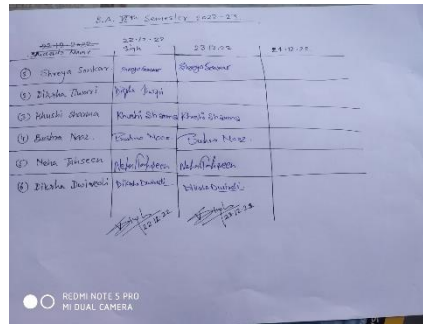 B.A. IIIrd Semester 2022-23
22-12-22
Student Name Sign 23.12.22 24-12-22
Shreya Sonkar Shreya Sonkar Shreya Sonkar
Diksha Tiwari
Khushi Sharma Khushi Sharma Khushi Sharma
Bushra Naaz Bushra Naaz Bushra Naaz
Neha Tahseen Neha Tahseen Neha Tahseen
(6) Diksha Dwivedi Diksha Dwivedi Diksha Dwivedi
22.12.22 23.12.22
REDMI NOTE 5 PRO
MI DUAL CAMERA